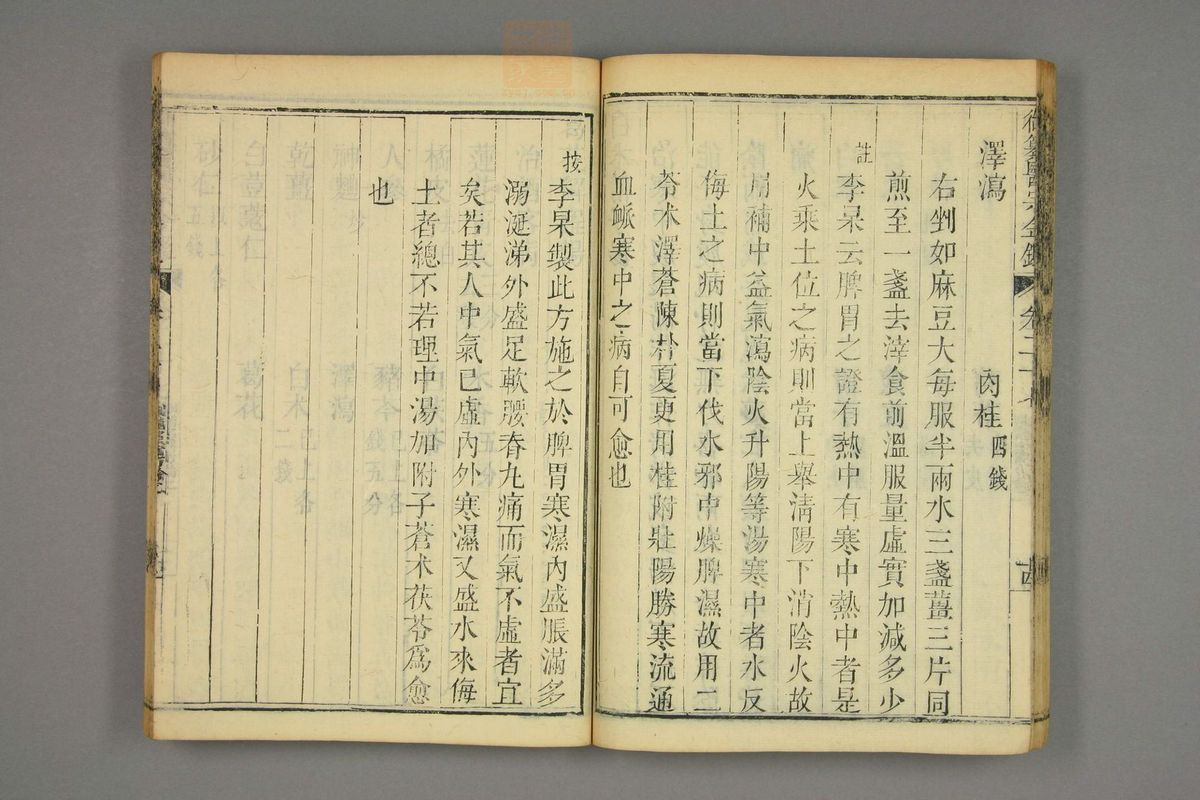 澤瀉 肉桂四錢
右剉如麻豆大每服半兩水三盞薑三片同
煎至一盞去滓食前溫服量虛實加減多少
註 李杲云脾胃之證有熱中有寒中熱中者是
火乘土位之病則當上舉清陽下消陰火故
用補中益氣瀉陰火升陽等湯寒中者水反
侮土之病則當下伐水邪中燥脾濕故用二
苓朮澤蒼陳朴夏更用桂附壯陽勝寒流通
血脈寒中之病自可愈也
按 李杲製此方施之於脾胃寒濕內盛脹滿多
溺涎涕外盛足軟腰脊九痛而氣不虛者宜
矣若其人中氣已虛內外寒濕又盛水來侮
土者總不若理中湯加附子蒼朮茯苓為愈
也